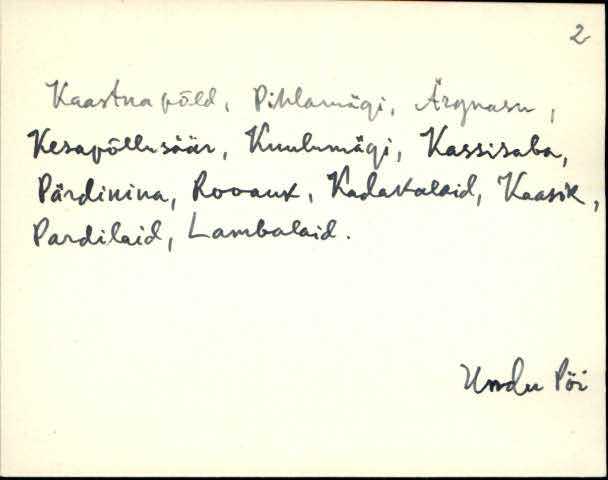 2
Kaastnapõld, Pihlamägi, Ärgnasu,
Kesapõllusäär, Kuulumägi, Kassisaba,
Pärdinina, Rooauk, Kadakalaid, Kaasik,
Pardilaid, Lambalaid.
Undu Pöi